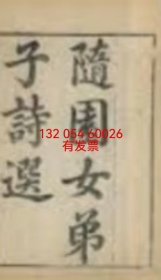 隨園女弟
子詩選
132 054 60026
有发票